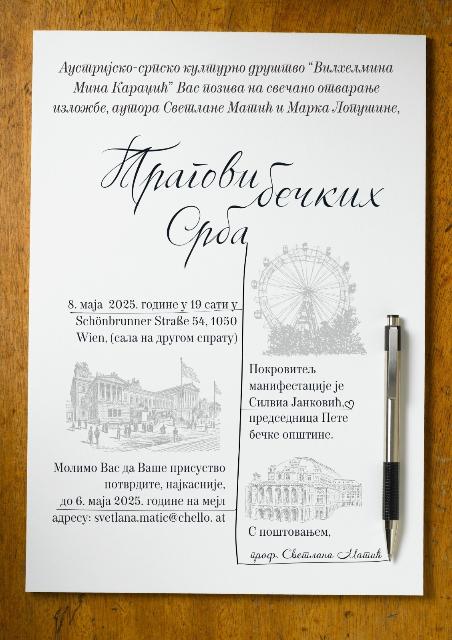 Аустријско-српско културно друштво “Вилхелмина
Мина Караџић” Вас позива на свечано отварање
изложбе, аутора Светлане Матић и Марка Лопушине,
Трагови бечких
Срба
8. маја 2025. године у 19 сати у
Schönbrunner Straße 54, 1050
Wien, (сала на другом спрату)
Покровитељ
манифестације је
Силвиа Јанковић,
председница Пете
бечке општине.
Молимо Вас да Ваше присуство
потврдите, најкасније,
до 6. маја 2025. године на мејл
адресу: svetlana.matic@chello. at
С поштовањем,
проф. Светлана Матић